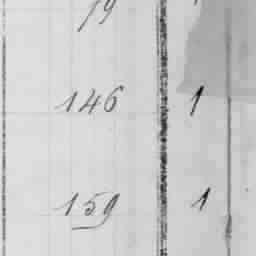 146 1
159 1